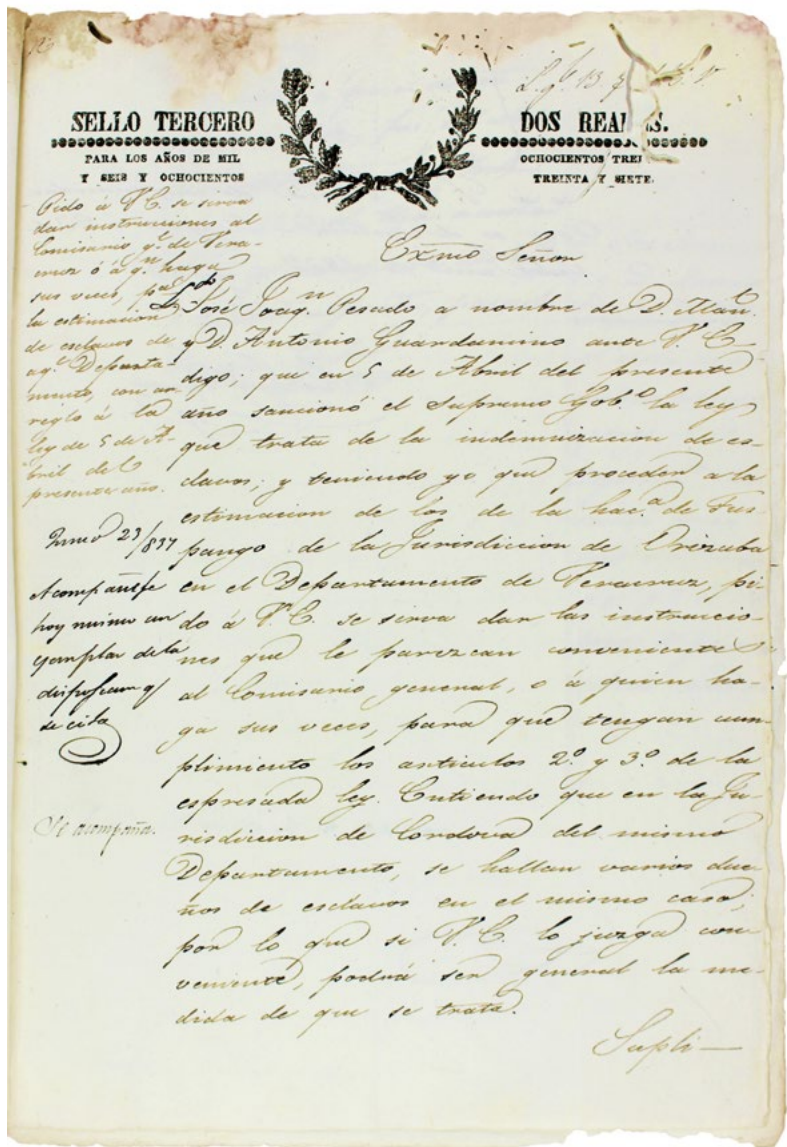 SELLO TERCERO
PARA LOS AÑOS DE MIL
Y SEIS Y OCHOCIENTOS
DOS REALES.
OCHOCIENTOS TREI
TREINTA Y SIETE.
Pido á V.E. se sirva
dar instrucciones al
Comisario gl. de Vera-
cruz ó á qn. haga
sus veces, pa.
la estimacion
de esclavos de
aql. Departa-
mento, con ar-
reglo á la
ley de 5 de A-
bril del
presente año.
Junio 23/837
Acompáñese
hoy mismo un
ejemplar de la
disposicion q
se cita
Se acompaña.
Exmo Señor
Ldo. José Joaqn. Pesado a nombre de D. Man.
y D. Antonio Guardamino ante V.E.
digo; que en 5 de Abril del presente
año sancionó el Supremo Gobo. la ley
que trata de la indemnizacion de es-
clavos; y teniendo yo que proceder a la
estimacion de los de la haca. de Tus-
pango de la Jurisdiccion de Orizaba
en el Departamento de Veracruz, pi-
do á V.E. se sirva dar las instruccio-
nes que le parezcan convenientes
al Comisario general, o á quien ha-
ga sus veces, para que tengan cum-
plimiento los articulos 2º y 3º de la
espresada ley. Entiendo que en la Ju-
risdiccion de Cordova del mismo
Departamento, se hallan varios due-
ños de esclavos en el mismo caso;
por lo que si V.E. lo juzga con-
veniente, podrá ser general la me-
dida de que se trata.
Supli-